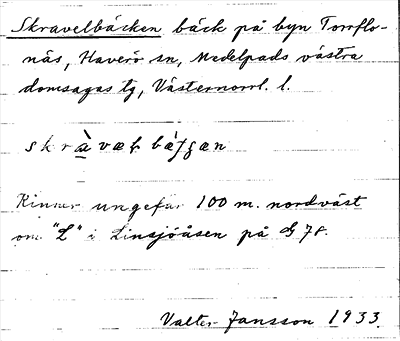 Skravelbäcken bäck på byn Torrflo-
näs, Haverö sn, Medelpads västra
domsagas tg, Västernorrl. l.
Rinner ungefär 100 m. nordväst
om "L" i Linsjöåsen på G 78.
Valter Jansson 1933.